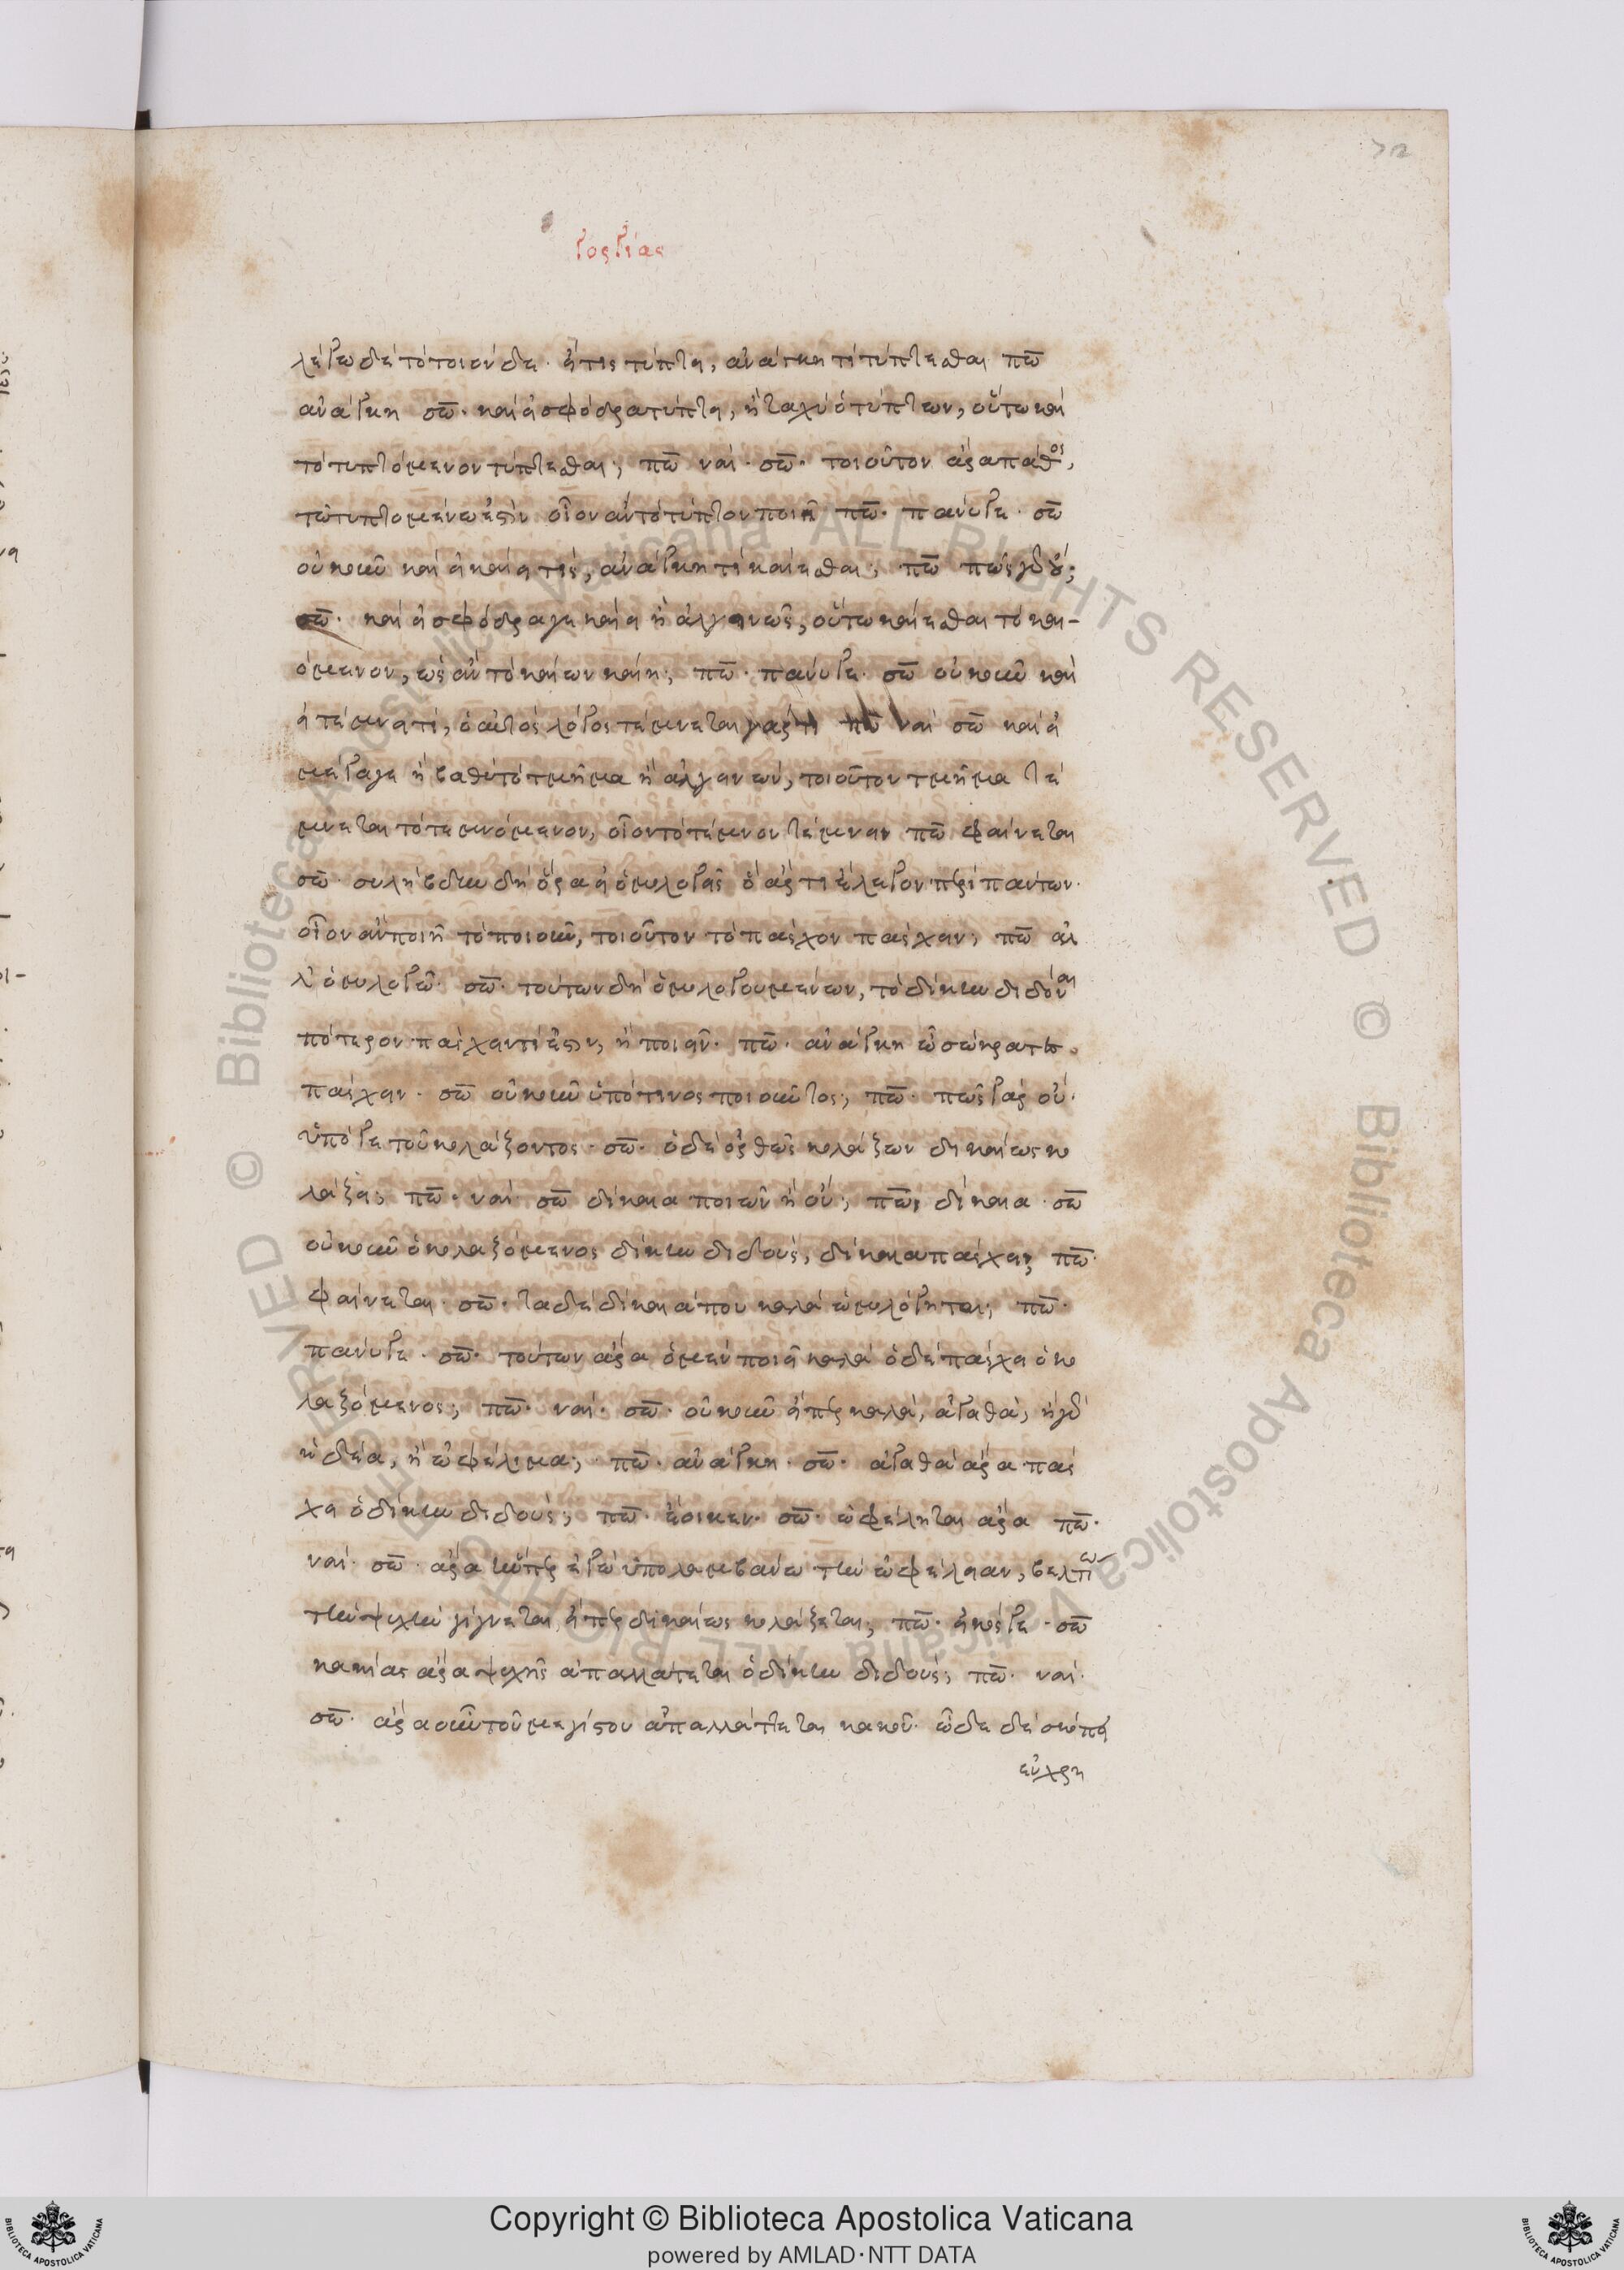 γοργίας
λέγω δὲ τὸ τοιόνδε· εἴ τις τύπτει, ἀνάγκη τί τύπτεσθαι πω̅
ἀνάγκη σω̅· καὶ εἰ σφόδρα τύπτει, ἢ ταχὺ ὁ τύπτων, οὕτω καὶ
τὸ τυπτόμενον τύπτεσθαι; πω̅ ναί· σω̅· τοιοῦτον ἄρα πάθος,
τῷ τυπτομένω ἐστὶν οἷον ἂν τὸ τύπτον ποιῇ πω̅· πάνυ γε· σω̅
οὐκοῦν καὶ εἰ καίει τίς, ἀνάγκη τὶ καίεσθαι; πω̅ πῶς γὰρ οὔ;
σω̅· καὶ εἰ σφόδρα γε καίει ἢ ἀλγεινῶς, οὕτω καίεσθαι τὸ και-
όμενον, ὡς ἂν τὸ καίων καίῃ; πω̅· πάνυ γε· σω̅ οὐκοῦν καὶ
εἰ τέμνει τί, ὁ αὐτὸς λόγος τέμνεται γάρ τι πω̅ ναί σω̅ καὶ εἰ
μέγα γε ἢ βαθὺ τὸ τμῆμα ἢ ἀλγεινὸν, τοιοῦτον τμῆμα τέ
μνεται τὸ τεμνόμενον, οἷον τὸ τέμνον τέμνει πω̅ φαίνεται
σω̅· συλήβδην δὴ ὅρα εἰ ὁμολογεῖς ὃ ἄρτι ἔλεγον περὶ πάντων·
οἷον ἂν ποιῇ τὸ ποιοῦν, τοιοῦτον τὸ πάσχον πάσχειν; πω̅ ἀλ
λ' ὁμολογῶ· σω̅· τούτων δὴ ὁμολογουμένων, τὸ δίκην διδόναι
πότερον πάσχειν τί ἐστιν, ἢ ποιεῖν· πω̅· ἀνάγκη ὦ σώκρατες
πάσχειν· σω̅ οὐκοῦν ὑπό τινος ποιοῦντος; πω̅· πῶς γὰρ οὔ·
ὑπό γε τοῦ κολάζοντος· σω̅· ὁ δὲ ὀρθῶς κολάζων δικαίως κο
λάζει; πω̅· ναί· σω̅ δίκαια ποιῶν ἢ οὔ; πω̅ δίκαια· σω̅
οὐκοῦν ὁ κολαζόμενος δίκην διδοὺς, δίκαια πάσχει; πω̅·
φαίνεται· σω̅· τὰ δὲ δίκαιά που καλὰ ὡμολόγηται; πω̅·
πάνυ γε· σω̅· τούτων ἄρα ὁ μὲν ποιεῖ καλὰ ὁ δὲ πάσχει ὁ κο
λαζόμενος; πω̅· ναί· σω̅· οὐκοῦν εἴπερ καλὰ, ἀγαθὰ; ἢ γὰρ
ἡδέα, ἢ ὠφέλιμα; πω̅· ἀνάγκη· σω̅· ἀγαθὰ ἄρα πάσ
χει ὁ δίκην διδούς; πω̅· ἔοικεν· σω̅· ὠφελῆται ἄρα πω̅·
ναί· σω̅· ἆρα ἥνπερ ἐγὼ ὑπολαμβάνω τὴν ὠφέλειαν, βελτίω
τὴν ψυχὴν γίγνεται, εἴπερ δικαίως κολάζεται; πω̅· εἰκός γε· σω̅
κακίας ἄρα ψυχῆς ἀπαλλάτεται ὁ δίκην διδούς; πω̅· ναί·
σω̅· ἆρα οὖν τοῦ μεγίστου ἀπαλλάττεται κακοῦ· ὧδε δὲ σκόπει
εὐχρη
Copyright © Biblioteca Apostolica Vaticana
powered by AMLAD·NTT DATA